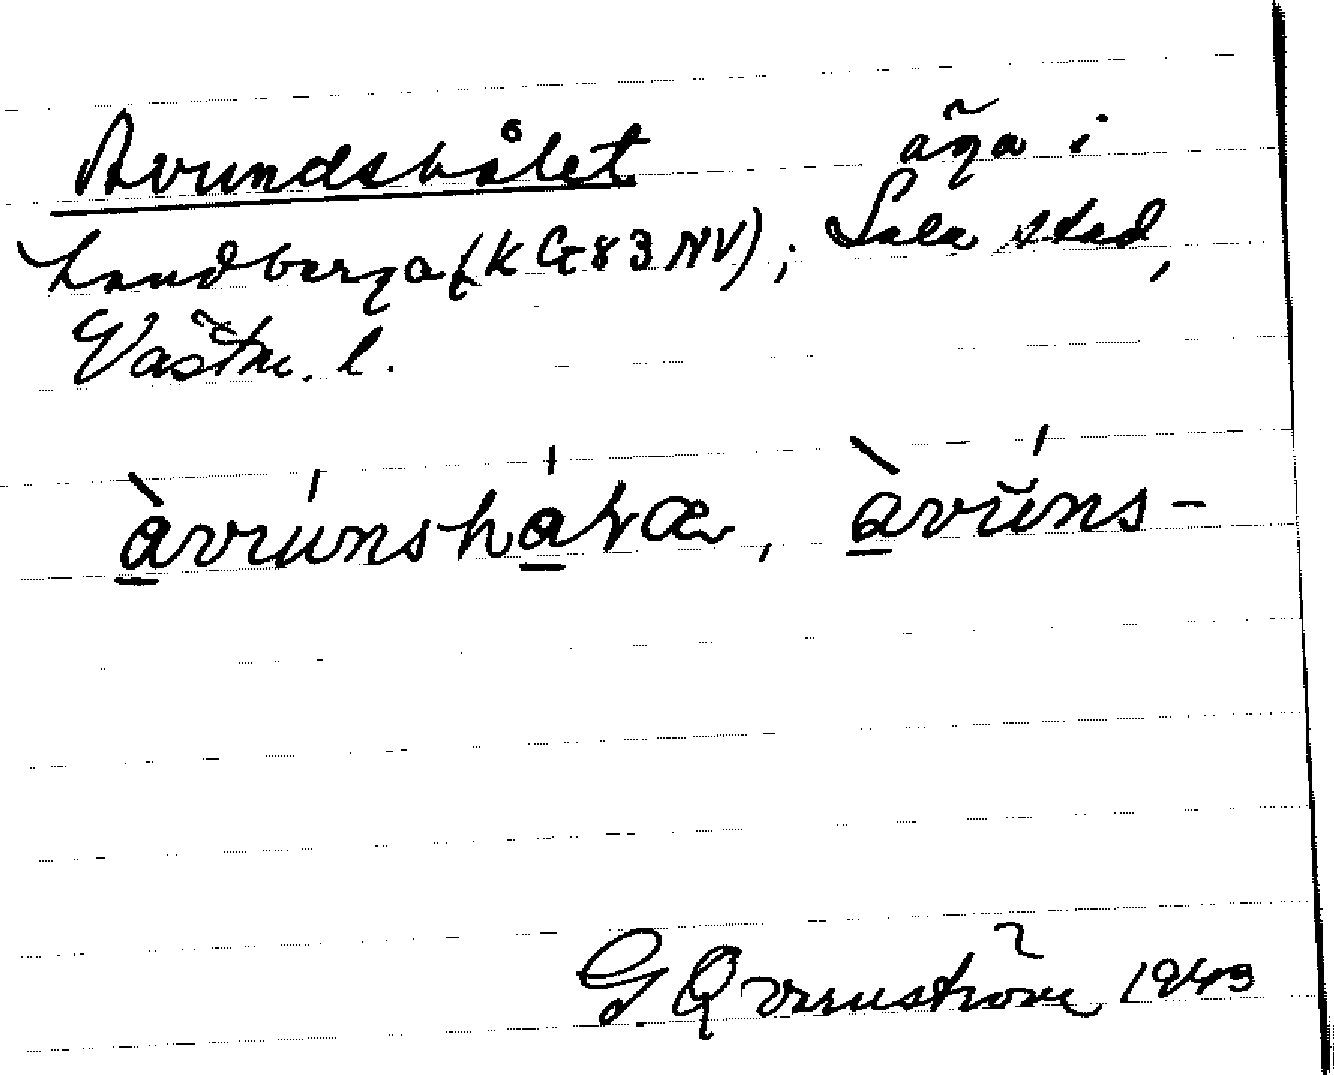 Avundshålet äga i
Landberga (K G 83 NV); Sala stad,
Västm. l.
àvúnshá̱ḷæ, àvúns-
G Qvarnström 1943